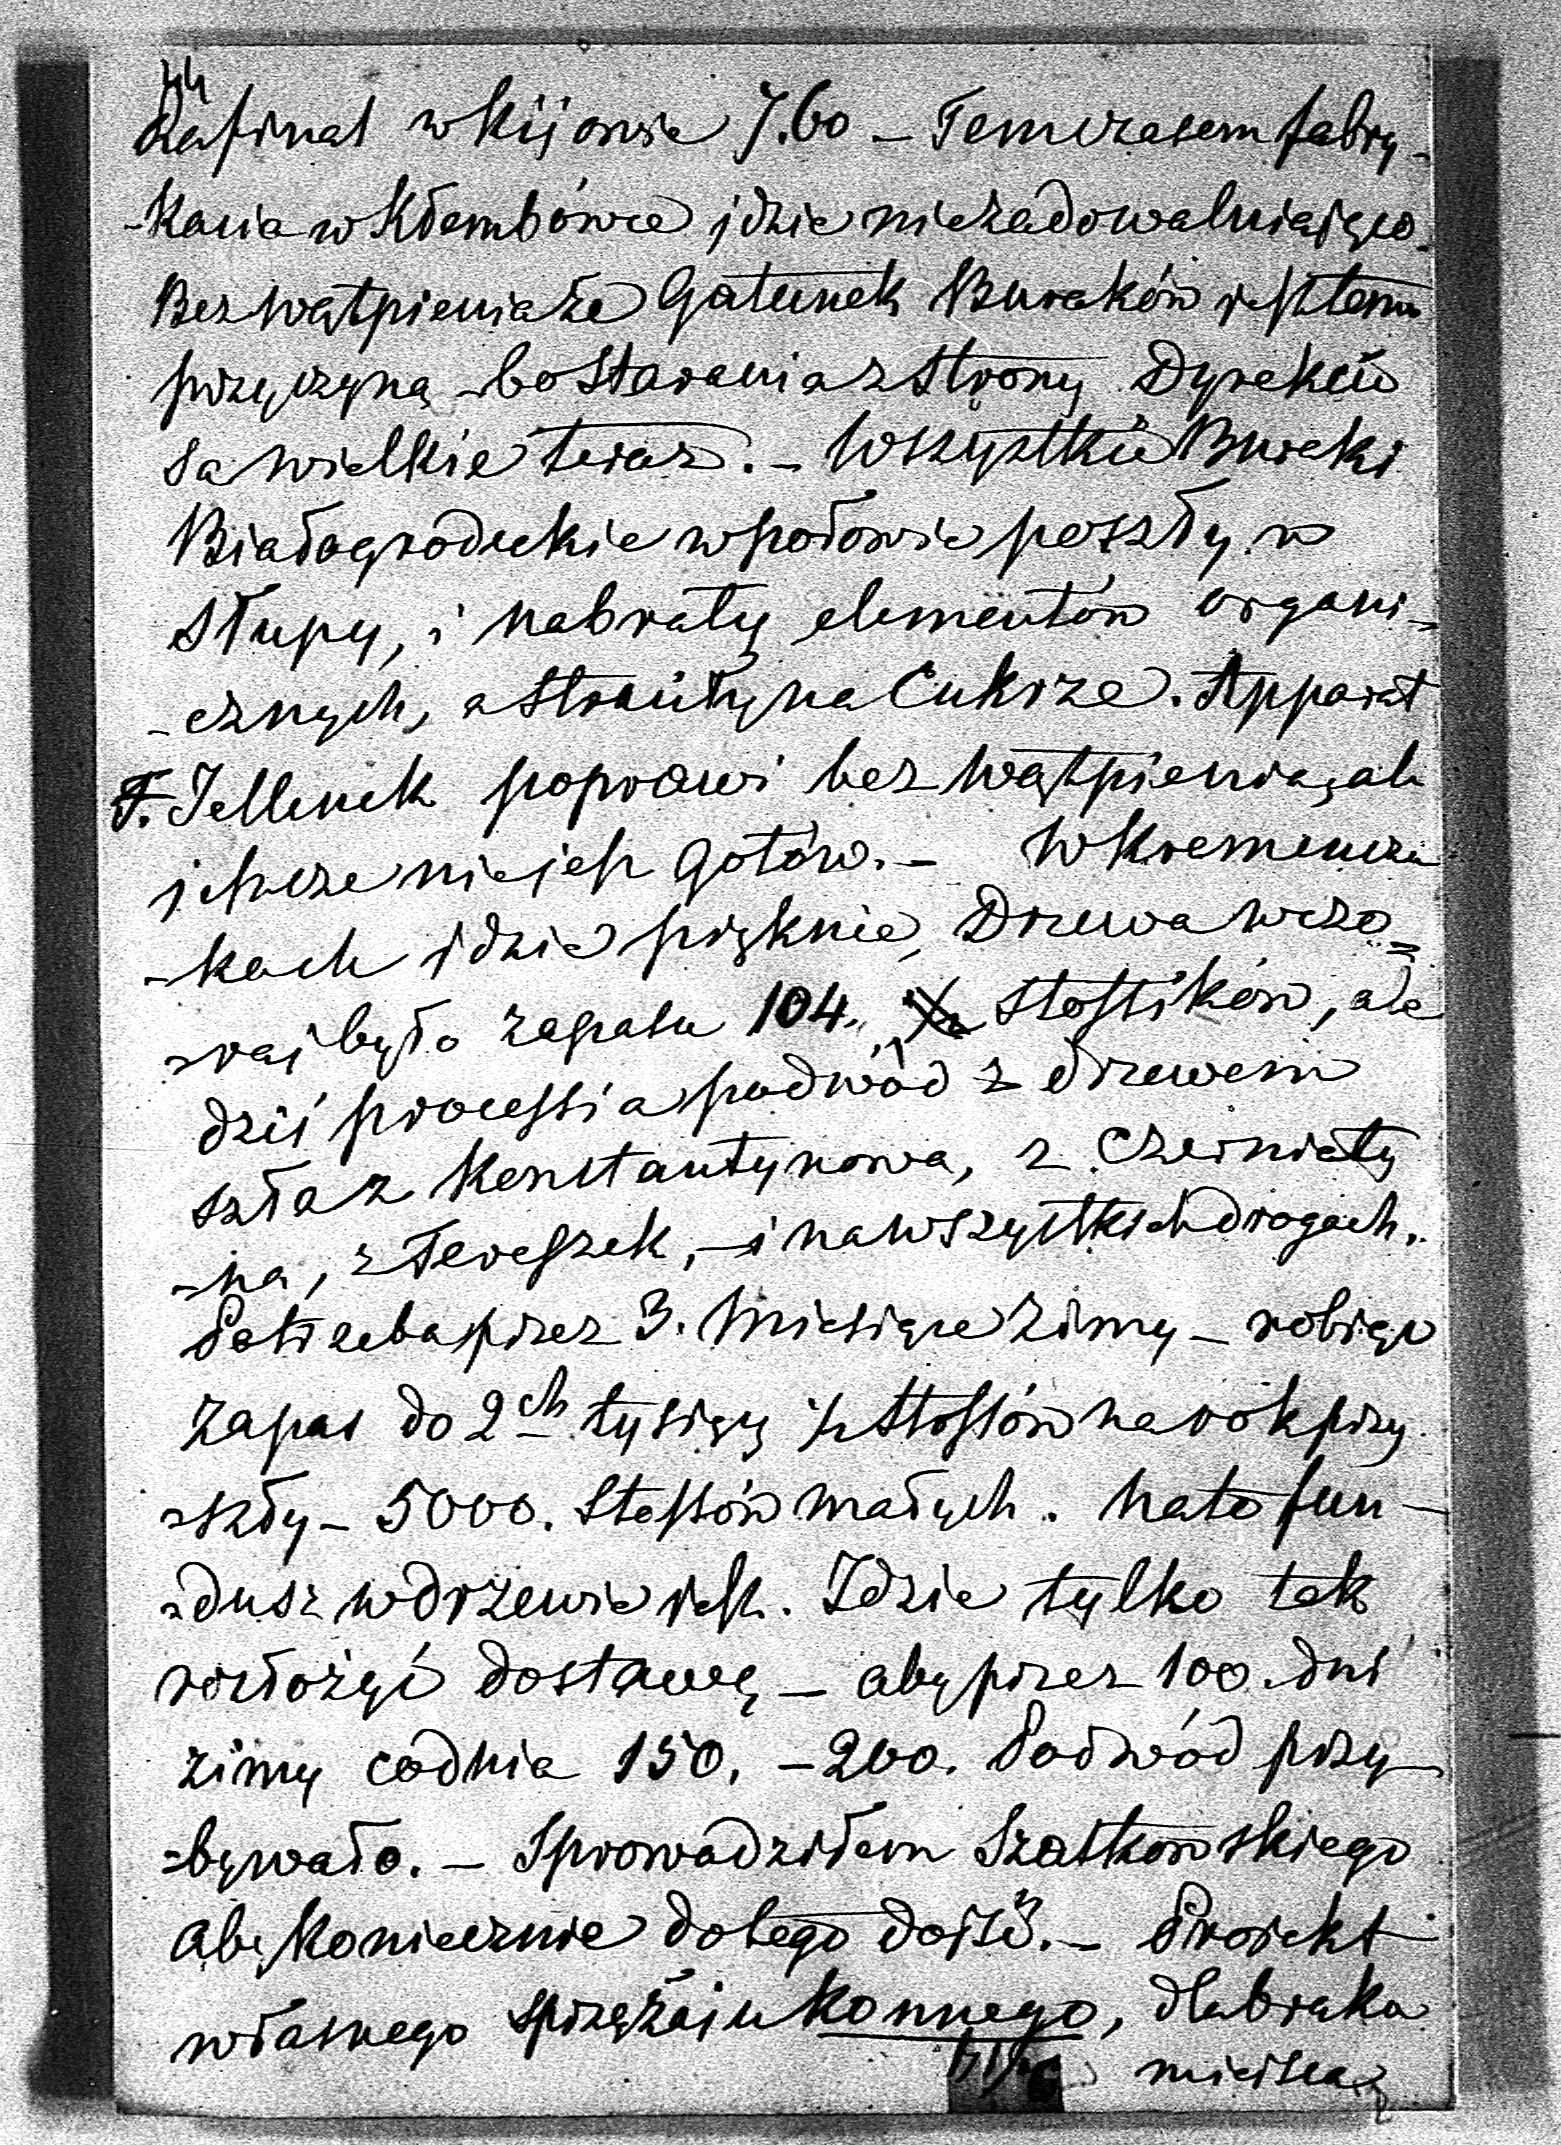 44
Rafinat w Kijowie 7.60 – Temczasem fabry-
-kacia w Kłembówce jdzie niezadowalniaiąco.
Bez wątpienia że Gatunek Buraków jest tem
przyczyną – bo starania z strony Dyrekcii
sa wielkie teraz. – Wszystkie Buraki
Białogrodeckie w połowie poszły w
słupy, i nabrały elementów organi-
-cznych, a straciły na Cukrze. Apparat
F. Jellinek poprawi bez wątpienia, ale
jeszcze nie jest Gotów. – W Kremencza
-kach jdzie pięknie, Drzewa wczo-
-raj było zapasu 104. stossików, ale
dziś processia podwód z drzewem
szła z Konstantynowa, z Czerniaty
-na, z Tereszek, – i na wszystkich drogach.
Potrzeba przez 3. Miesiące Zimy – robiąc
zapas do 2ch tysięcy stossów na rok przy
-szły – 5000. Stossów małych. Na to fun-
-dusz w drzewie jest. Idzie tylko tak
rozłożyć dostawę – aby przez 100. dni
zimy codnia 150. – 200. Podwód przy
-bywało. – Sprowadziłem Szatkowskiego
aby koniecznie do tego dojść. – Projekt
własnego sprzężaju konnego, dla braku
miejsca